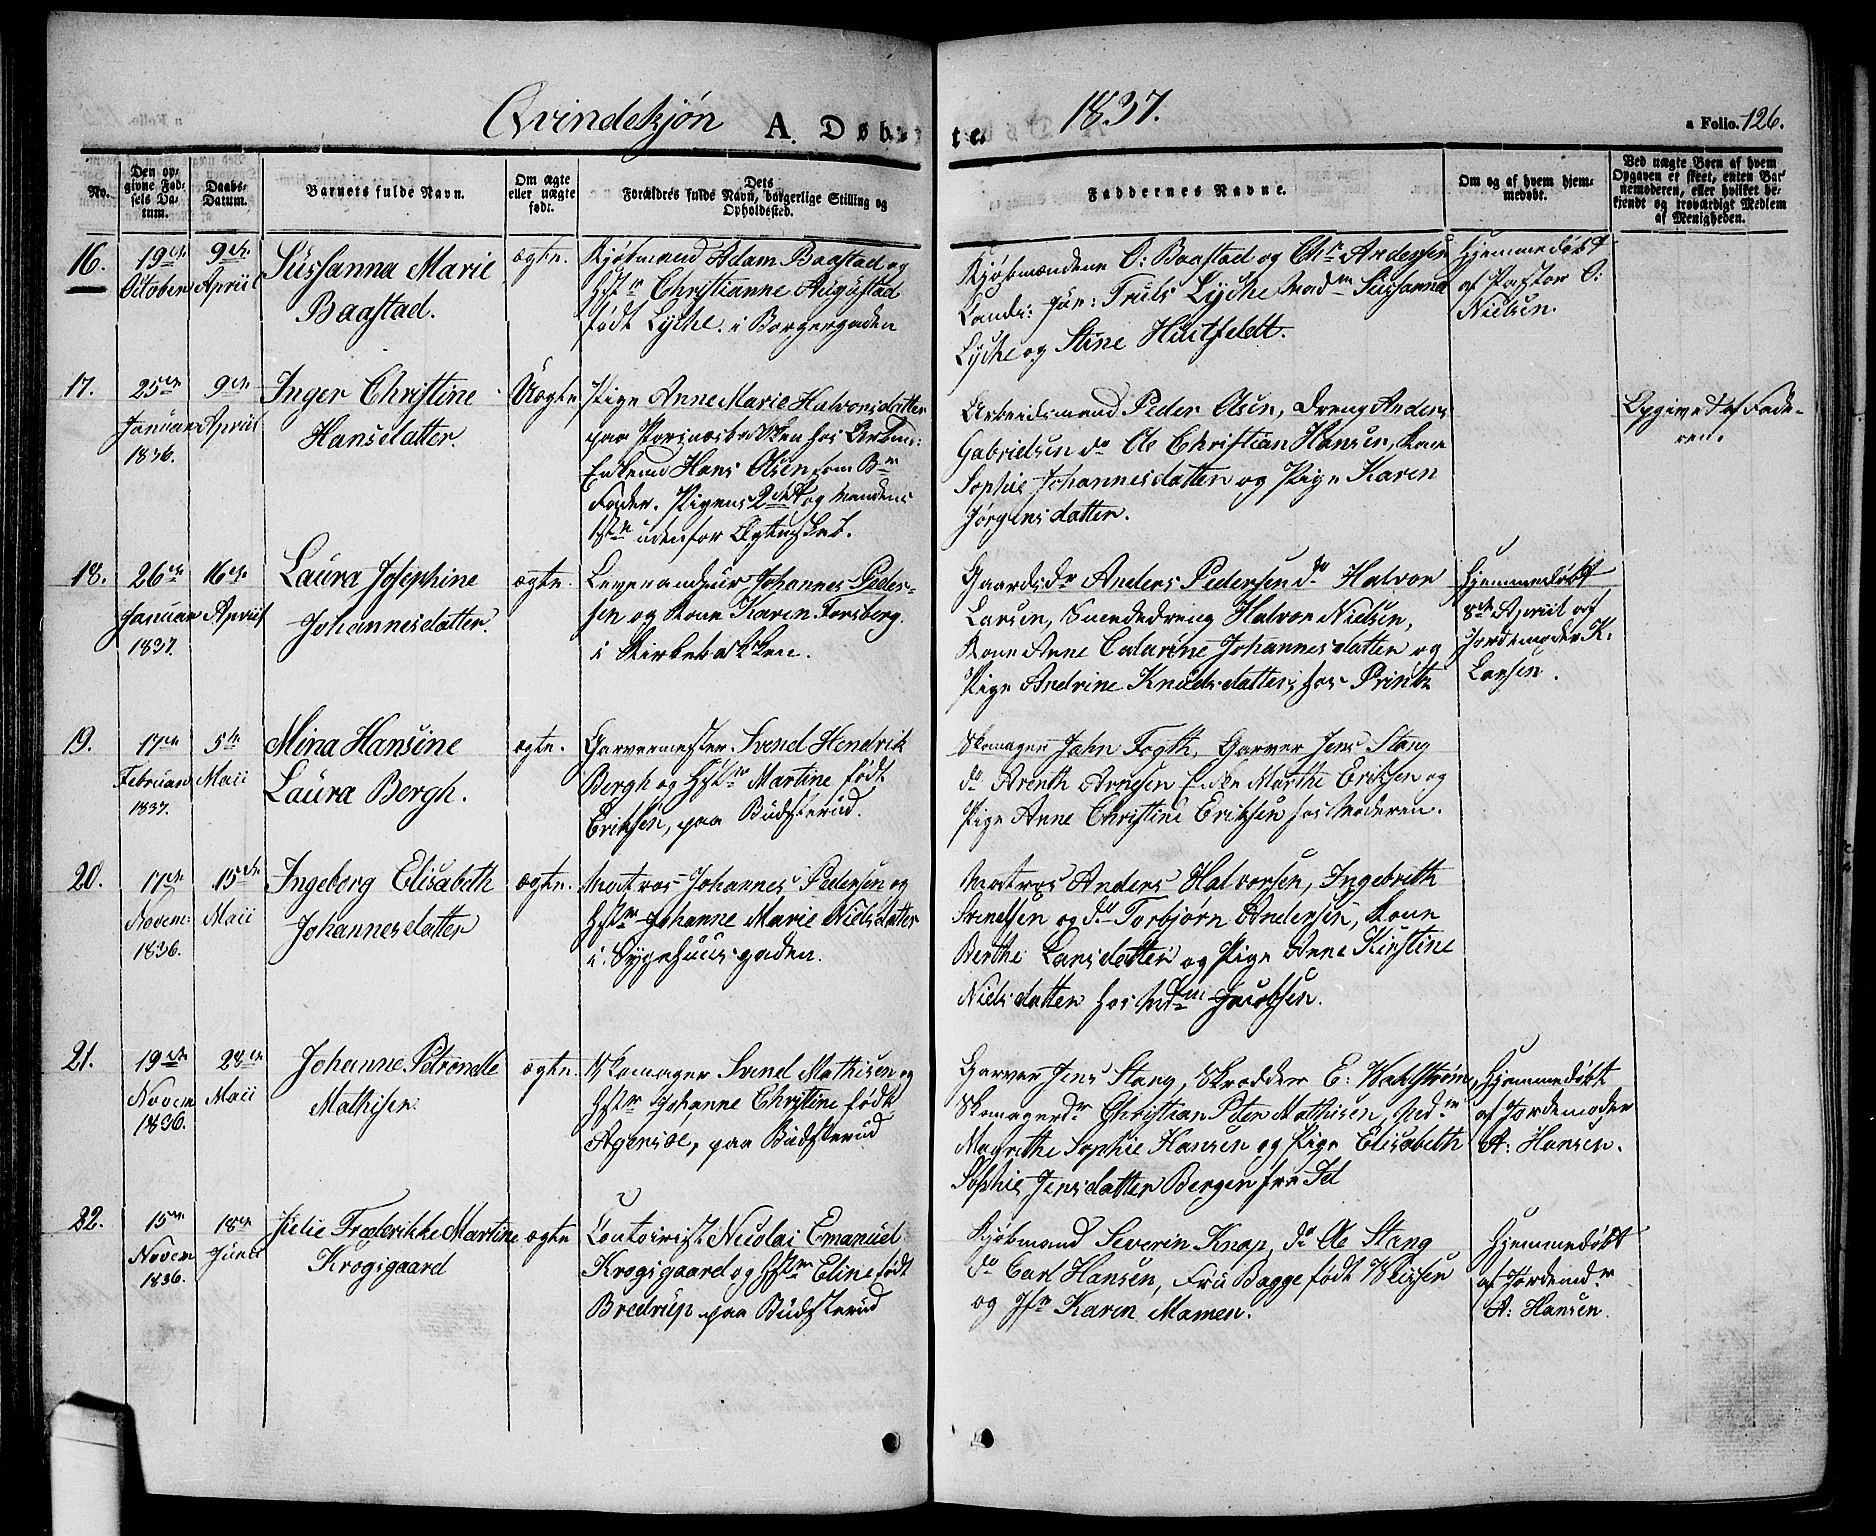 Qvindekjøn A. Døbte 1837.
a Folio. 126.
No.
Den opgivne Fødsels Datum.
Daabs-Datum.
Barnets fulde Navn.
Om ægte eller uægte født.
Dets Forældres fulde Navn, borgerlige Stilling og Opholdssted.
Faddernes Navne.
Om og af hvem hjemmedøbt.
Ved uægte Børn af hvem Opgaven er skeet, enten Barnemoderen, eller hvilket bekjendt og troværdigt Medlem af Menigheden.
16.
19de October
9de April
Sussanna Marie
Baastad.
ægte.
Kjøbmand Adam Baastad og
Hstr Christianne Augustad
født Lyche. i Borgergaden
Kjøbmændene O: Baastad og Chr Andersen
Cand: jur: Truls Lyche Madm Sussanna
Lyche og Stine Huitfeldt.
Hjemmedøbt
af Pastor O:
Nielsen.
17.
25de
Januar
1836.
9de
April
Inger Christine
Hansdatter.
Uægte
Pige Anne Marie Halvorsdatter
paa
Enkemd Hans Olsen som B
Fader. Pigens 2det og Mandens
1ste udenfor Ægteskab.
Arbeidsmand Peder Olsen, Dreng Anders
Gabrielsen do Ole Christian Hansen, Kone
Sophie Johannesdatter og Pige Karen
Jørgensdatter.
Opgivet af Fade-
ren.
18.
26de
Januar
1837.
16de
April
Laura Josephine
Johannesdatter.
ægte.
Johannes Peder-
sen og Kone Karen Forsberg.
i Kirkebakken.
Gaardsdr Anders Pedersen do Halvor
Larsen, Smededreng Halvor Nielsen,
Kone Anne Catarine Johannesdatter og
Pige Andrine Knudsdatter, hos Printz
Hjemmedøbt
8de April af
Jordemoder K:
Larsen.
19.
17de
Februar
1837.
5te
Maii
Mina Hansine
Laura Bergh.
ægte.
Garvermester Svend Hendrik
Bergh og Hstr Martine født
Eriksen, paa Büdsterud.
Skomager John Fogth, Garver Jens Stang
do Arenth Arnesen Enke Marthe Eriksen og
Pige Anne Christine Eriksen hos Moderen.
20.
17de
Novem:
1836.
15de
Maii
Ingeborg Elisabeth
Johannesdatter
ægte.
Matros Johannes Pedersen og
Hstr Johanne Marie Nielsdatter
i Sygehuusgaden.
Matros Anders Halvorsen, Ingebreth
Svendsen og do Torbjørn Andersen, Kone
Berthe Larsdatter og Pige Anne Kirstine
Nielsdatter hos Mdm Jacobsen.
21.
19de
Novem
1836.
28de
Maii
Johanne Petronelle
Mathisen
ægte.
Skomager Svend Mathisen og
Hstr Johanne Christine født
Agersøe, paa Büdsterud
Garver Jens Stang, Skrædder E: Wahlstrøm,
Skomagerdr Christian Peter Mathisen, Mdm
Magrethe Sophie Hansen og Pige Elisabeth
Sophie Jensdatter Bergen fra Id
Hjemmedøbt
af Jordemoder
A: Hansen.
22.
15de
Novem
1836.
18de
Juni
Julie Frederikke Martine
Krogsgaard
ægte
Contoirist Nicolai Emanuel
Krogsgaard og Hstr Eline født
Bredrup paa Büdsterud
Kjøbmand Severin Knap, do Ole Stang
do Carl Hansen, Fru Bagge født Nissen
og Jfr Karen Mamen.
Hjemmedøbt
af Jordemdr
A: Hansen.